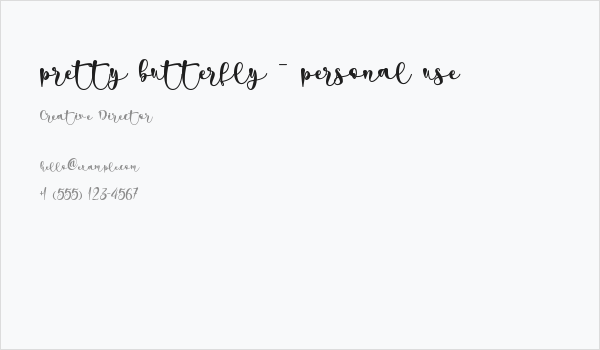 pretty butterfly - personal use
Creative Director
hello@example.com
+1 (555) 123-4567